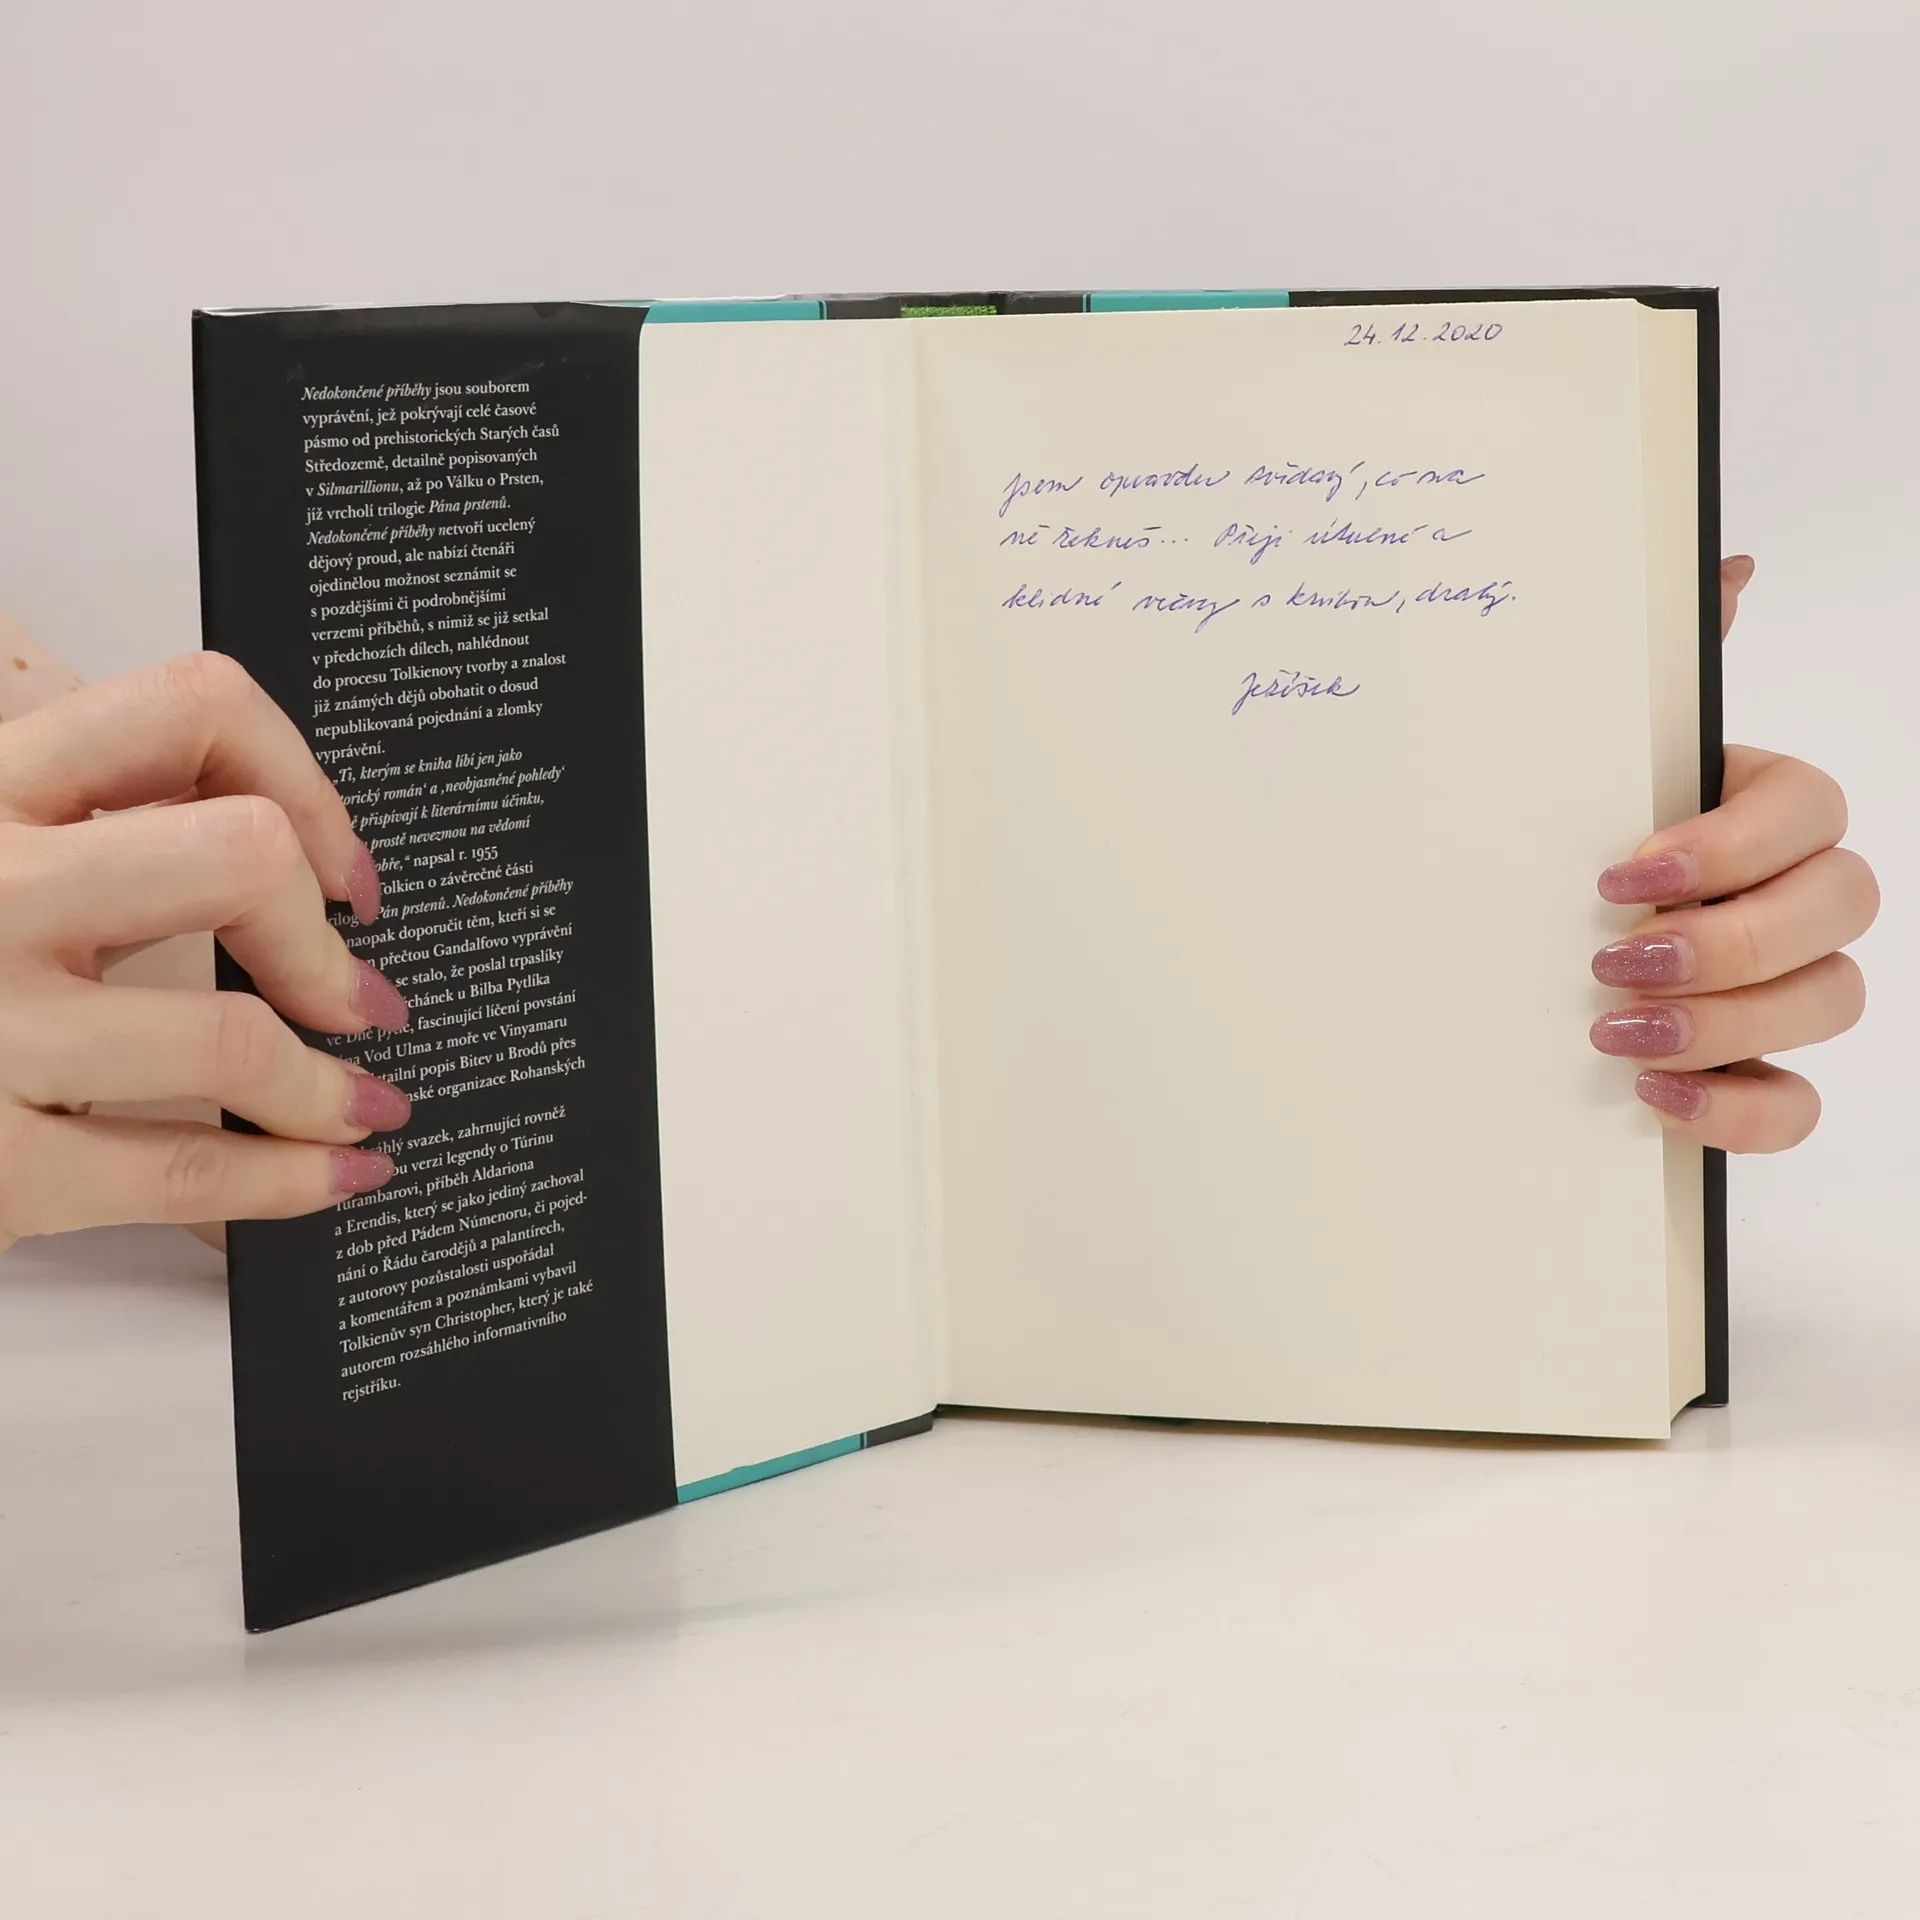 Nedokončené příběhy jsou souborem
vyprávění, jež pokrývají celé časové
pásmo od prehistorických Starých časů
Středozemě, detailně popisovaných
v Silmarillionu, až po Válku o Prsten,
jíž vrcholí trilogie Pána prstenů.
Nedokončené příběhy netvoří ucelený
dějový proud, ale nabízí čtenáři
ojedinělou možnost seznámit se
s pozdějšími či podrobnějšími
verzemi příběhů, s nimiž se již setkal
v předchozích dílech, nahlédnout
do procesu Tolkienovy tvorby a znalost
již známých dějů obohatit o dosud
nepublikovaná pojednání a zlomky
vyprávění.
„Ti, kterým se kniha líbí jen jako
román‘ a ‚neobjasněné pohledy‘
přispívají k literárnímu účinku,
prostě nevezmou na vědomí
napsal r. 1955
Tolkien o závěrečné části
Pán prstenů. Nedokončené příběhy
naopak doporučit těm, kteří si se
přečtou Gandalfovo vyprávění
se stalo, že poslal trpaslíky
u Bilba Pytlíka
ve Dně fascinující líčení povstání
Vod Ulma z moře ve Vinyamaru
popis Bitev u Brodů přes
organizace Rohanských
svazek, zahrnující rovněž
verzi legendy o Túrinu
Turambarovi, příběh Aldariona
a Erendis, který se jako jediný zachoval
z dob před Pádem Númenoru, či pojed-
nání o Řádu čarodějů a palantírech,
z autorovy pozůstalosti uspořádal
a komentářem a poznámkami vybavil
Tolkienův syn Christopher, který je také
autorem rozsáhlého informativního
rejstříku.
24.12.2020
Jsem opravdu zvědavý, co na
ně řekneš... Přeji útulné a
klidné večery s knihou, drahý.
Ježíšek